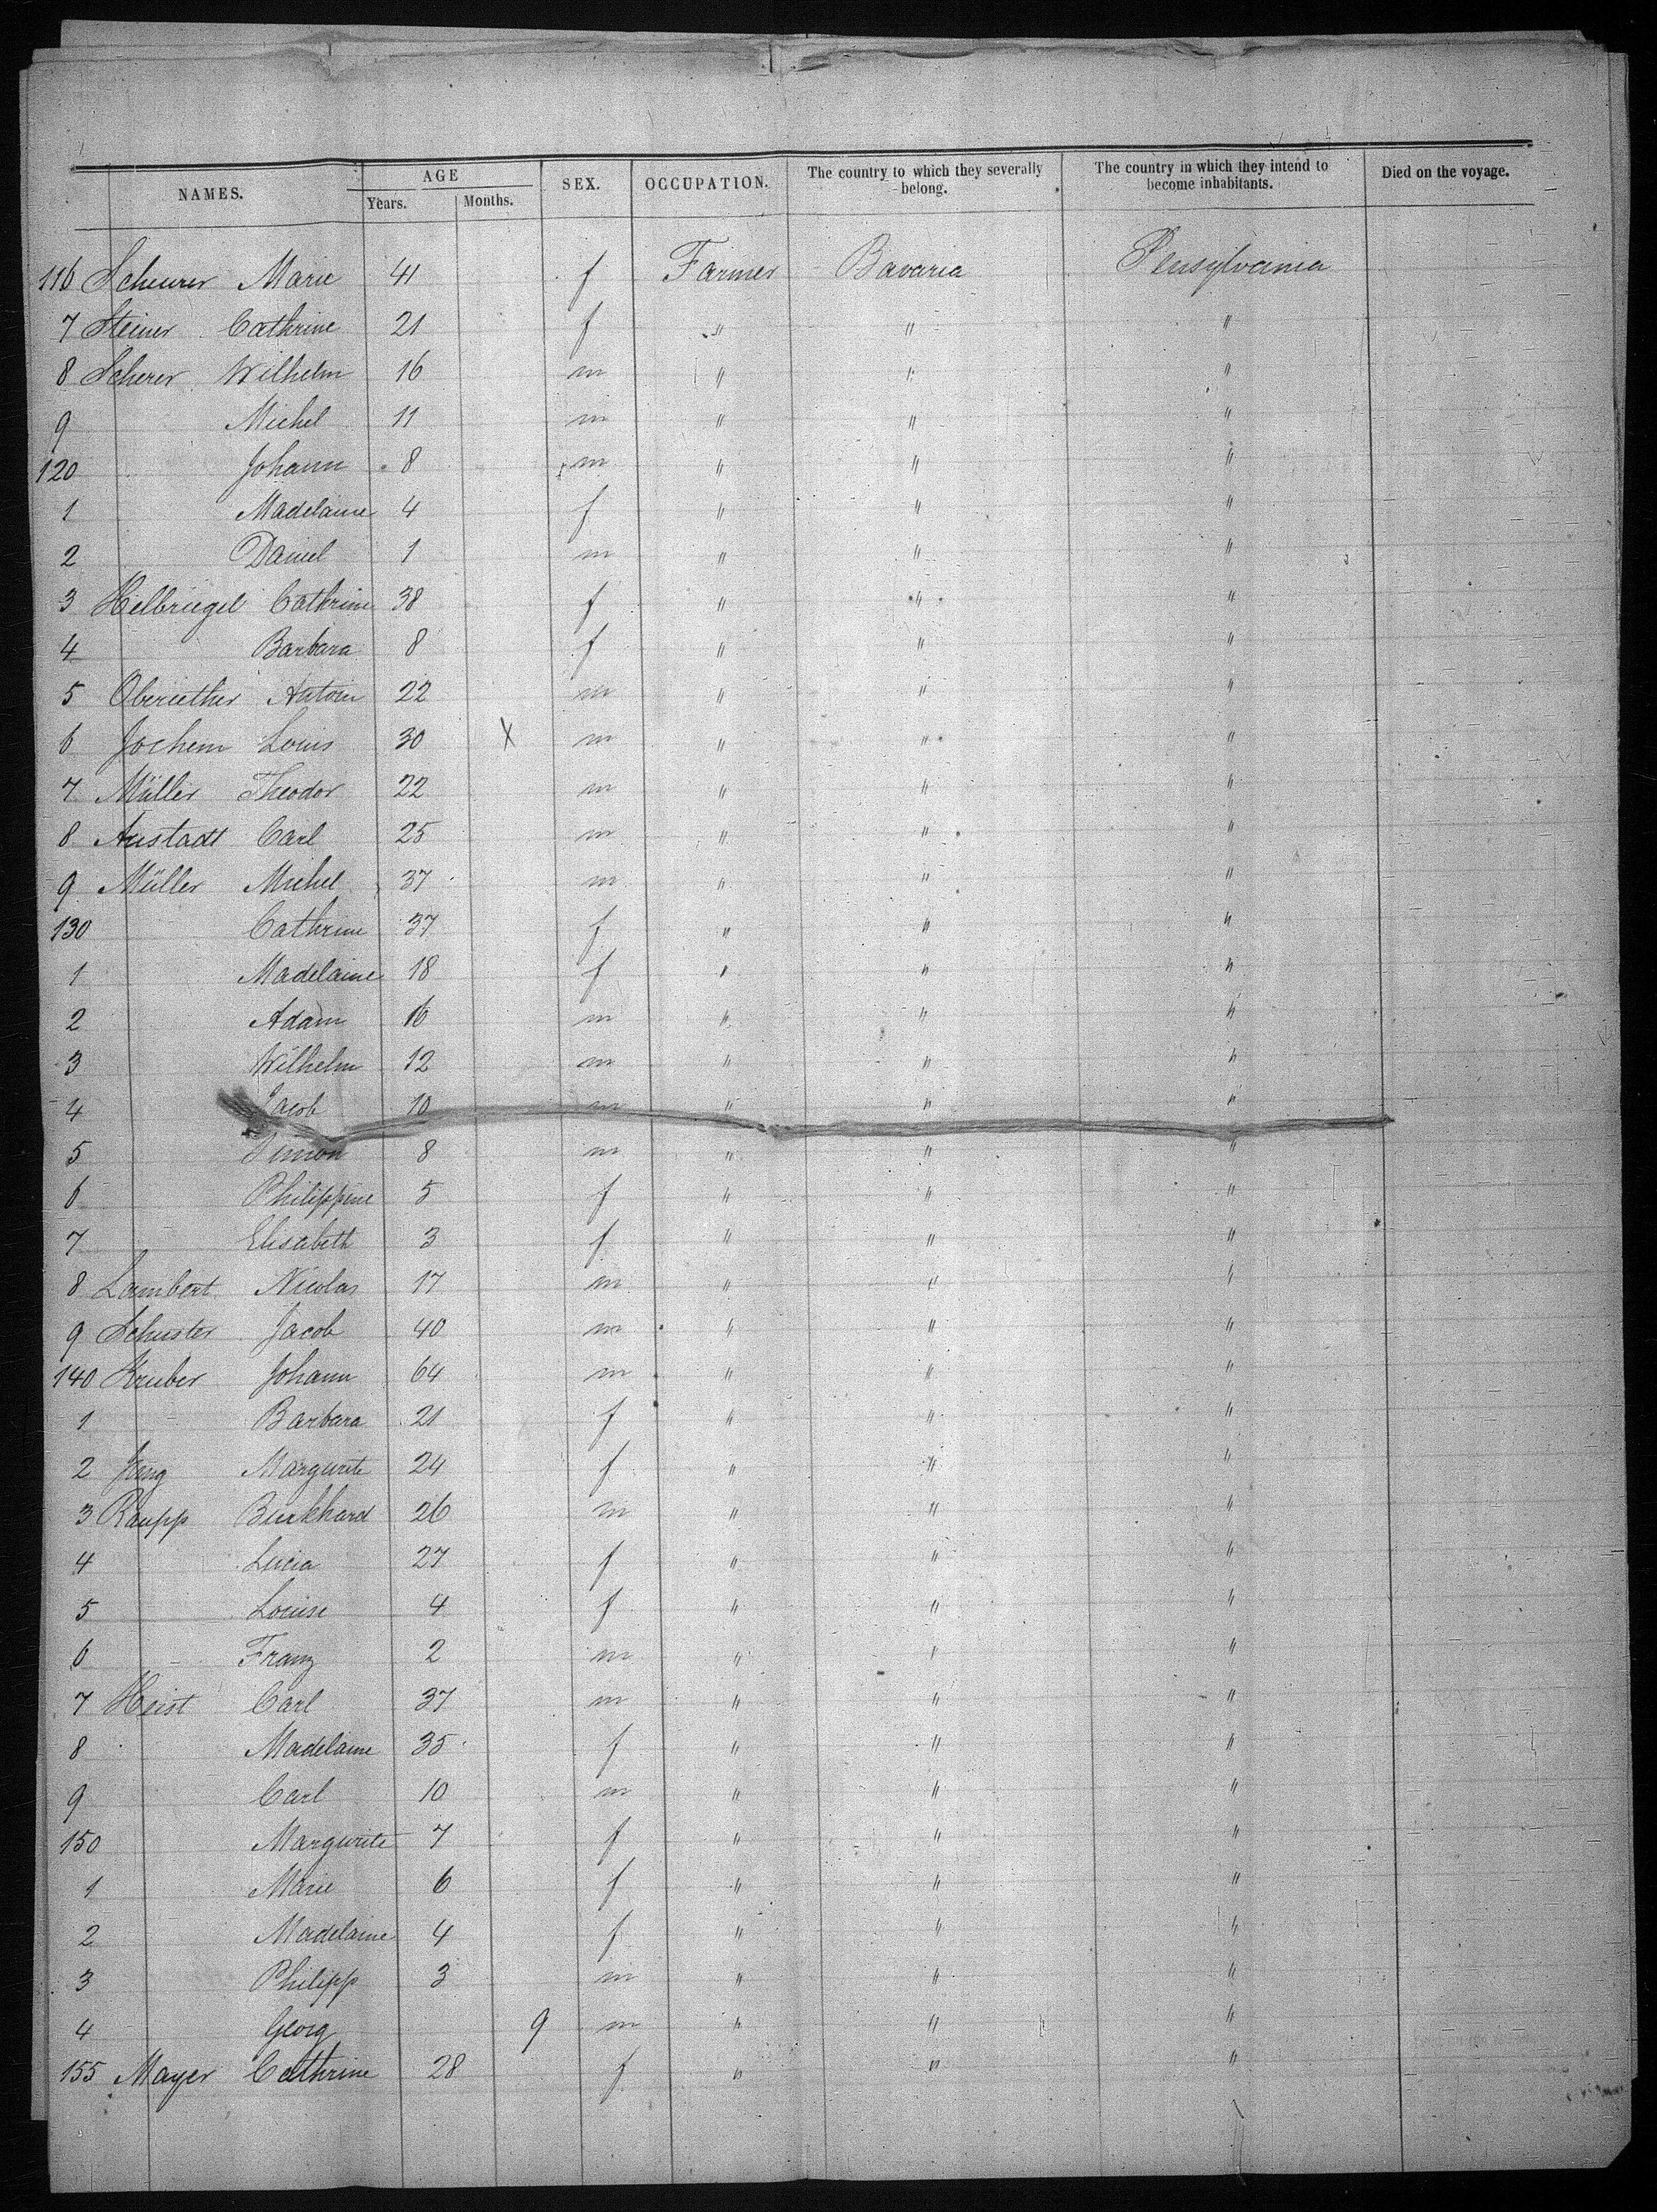 NAMES. AGE Years. Months. SEX. OCCUPATION. The country to which they severally belong. The country in which they intend to become inhabitants. Died on the voyage.
116 Scheurer Marie 41 f Farmer Bavaria Pensylvania
7 Steiner Cathrine 21 f " " "
8 Scherer Wilhelm 16 m " " "
9 Michel 11 m " " "
120 Johann 8 m " " "
1 Madelaine 4 f " " "
2 Daniel 1 m " " "
3 Helbriegel Cathrine 38 f " " "
4 Barbara 8 f " " "
5 Antoin 22 m " " "
6 Jochem Louis 30 X m " " "
7 Müller Theodor 22 m " " "
8 Anstadt Carl 25 m " " "
9 Müller Michel 37 m " " "
130 Cathrine 37 f " " "
1 Madelaine 18 f " " "
2 Adam 16 m " " "
3 Wilhelm 12 m " " "
4 Jacob 10 m " " "
5 Simon 8 m " " "
6 Philippine 5 f " " "
7 Elisabeth 3 f " " "
8 Lambert Nicolas 17 m " " "
9 Schuster Jacob 40 m " " "
140 Kruber Johann 64 m " " "
1 Barbara 21 f " " "
2 Margurite 24 f " " "
3 Raupp Burkhard 26 m " " "
4 Lucia 27 f " " "
5 Louise 4 f " " "
6 Franz 2 m " " "
7 Heist Carl 37 m " " "
8 Madelaine 35 f " " "
9 Carl 10 m " " "
150 Margurite 7 f " " "
1 Marie 6 f " " "
2 Madelaine 4 f " " "
3 Philipp 3 m " " "
4 Georg 9 m " " "
155 Mayer Cathrine 28 f " " "